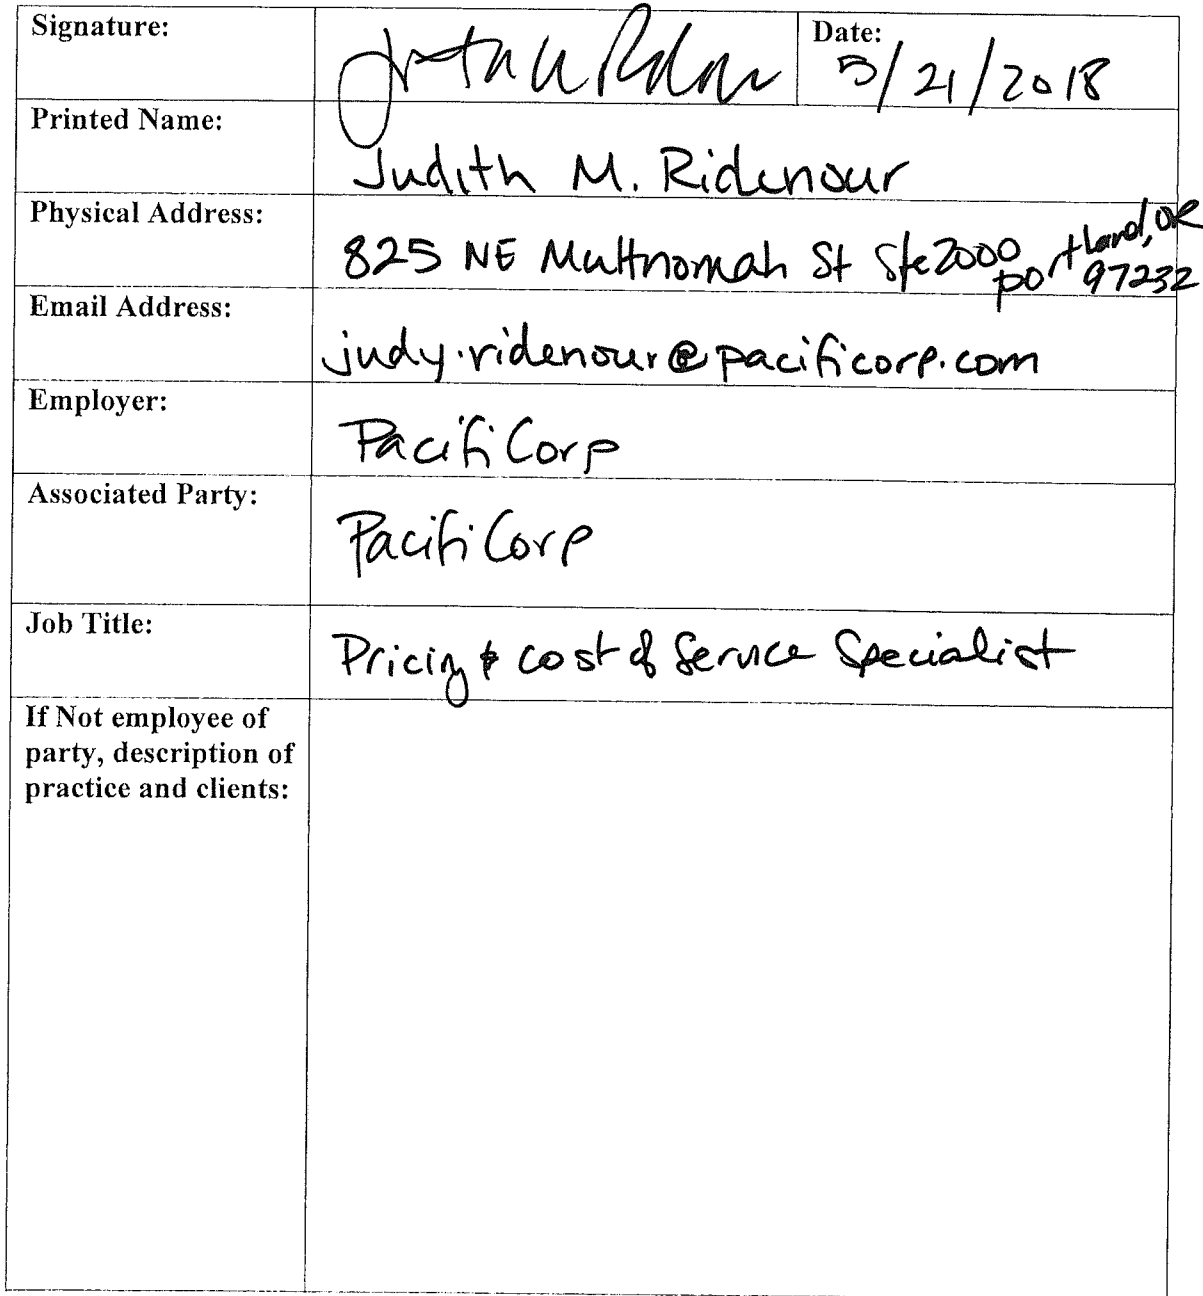 Signature:
Date:
5/21/2018
Printed Name:
Judith M. Ridenour
Physical Address:
825 NE Multnomah St Ste 2000 Portland, OR
97232
Email Address:
judy.ridenour@pacificorp.com
Employer:
PacifiCorp
Associated Party:
PacifiCorp
Job Title:
Pricing & Cost of Service Specialist
If Not employee of
party, description of
practice and clients: